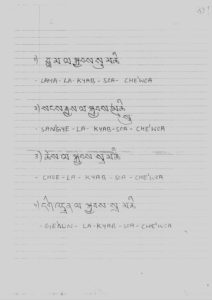 1) བླ་མ་ལ་སྐྱབས་སུ་མཆི
- LAMA-LA-KYAB-SOA-CHE'WOA
2) སངས་རྒྱས་ལ་སྐྱབས་སུ་མཆི
- SANGYE-LA-KYAB-SOA-CHE'WOA
3) ཆོས་ལ་སྐྱབས་སུ་མཆི
- CHOE-LA-KYAB-SOA-CHE'WOA
4) དགེ་འདུན་ལ་སྐྱབས་སུ་མཆི
- GIEDUN-LA-KYAB-SOA-CHE'WOA